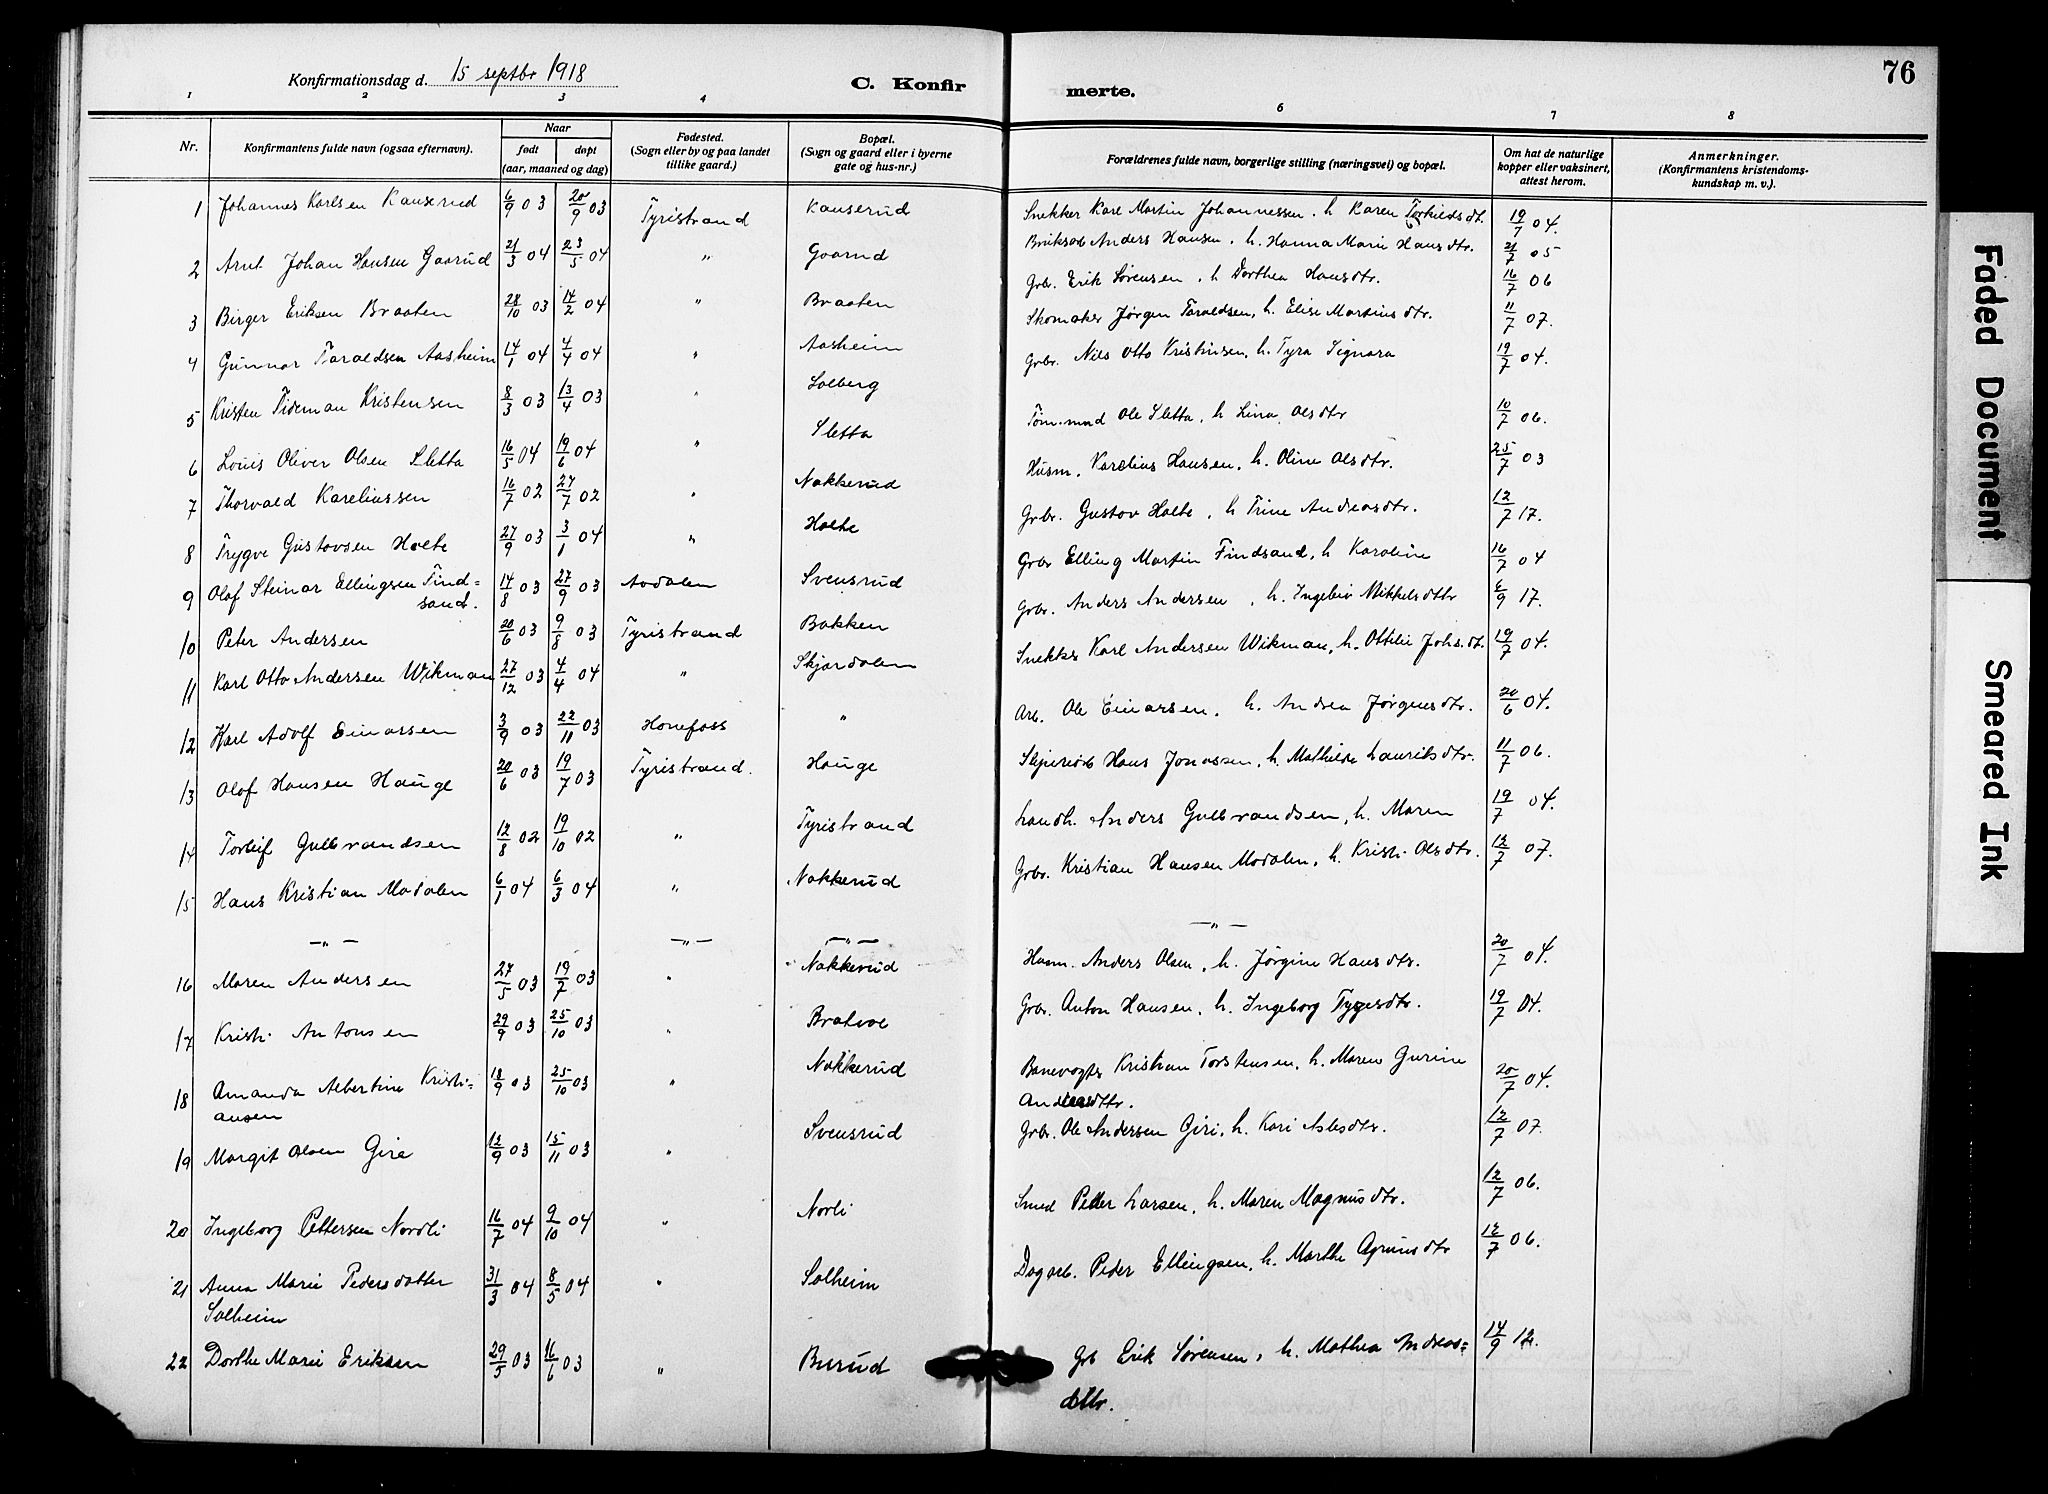 Konfirmationsdag d. 15 septbr 1918
C. Konfir merte.
76
1 2 3 4 6 7 8
Nr.
Konfirmantens fulde navn (ogsaa efternavn).
Naar
født døpt
(aar, maaned og dag)
Fødested.
(Sogn eller by og paa landet
tillike gaard.)
Bopæl.
(Sogn og gaard eller i byerne
gate og hus-nr.)
Forældrenes fulde navn, borgerlige stilling (næringsvei) og bopæl.
Om hat de naturlige
kopper eller vaksinert,
attest herom.
Anmerkninger.
(Konfirmantens kristendoms-
kundskap m. v.).
1 Johannes Karlsen Kauserud 6/9 03 20/9 03 Tyristrand Kauserud Snekker Karl Martin Johannessen, h. Karen Torkildsdt. 19/7 04.
2 Arnt Johan Hansen Gaarud 21/3 04 23/5 04 " Gaarud Bruksarb Anders Hansen, h. Hanna Marie Hansdtr. 21/7 05
3 Birger Eriksen Braaten 28/10 03 14/2 04 " Braaten Grbr. Erik Sørensen, h Dorthea Hansdtr. 16/7 06
4 Gunnar Taraldsen Aasheim 14/1 04 4/4 04 " Aasheim Skomaker Jørgen Taraldsen, h. Elise Martinsdtr. 11/7 07.
5 Kristen Tideman Kristensen 8/3 03 13/4 03 " Solberg Grbr. Nils Otto Kristensen, h. Tyra Signora 19/7 04.
6 Louis Oliver Olsen Sletta 16/5 04 19/6 04 " Sletta Tøm.mand Ole Sletta, h Lina Olsdtr 10/7 06.
7 Thorvald Kareliussen 16/7 02 27/7 02 " Nakkerud Husm. Karelius Hansen, h. Oline Olsdtr. 25/7 03
8 Trygve Gustavsen Holte 27/9 03 3/1 04 " Holte Grbr. Gustav Holte, h Trine Andersdtr. 12/7 17.
9 Olaf Steinar Ellingsen Find=
sand. 14/8 03 27/9 03 Aadalen Svensrud Grbr Elling Martin Findsand, h Karoline 16/7 04
10 Peter Andersen 20/6 03 9/8 03 Tyristrand Bakken Grbr. Anders Andersen, h. Ingebor Mikkelsdtr 6/9 17.
11 Karl Otto Andersen Wikman 27/12 03 4/4 04 " Skjærdalen Snekker Karl Andersen Wikman, h. Ottilie Johs.dt. 19/7 04.
12 Karl Adolf Einarsen 3/9 03 22/11 03 Hønefoss " Arb. Ole Einarsen, h. Andrea Jørgensdtr. 20/6 04.
13 Olaf Hansen Hauge 20/6 03 19/7 03 Tyristrand. Hauge Hans Jonassen, h. Mathilde Lauritsdtr. 11/7 06.
14 Torleif Gulbrandsen 12/8 02 19/10 02 " Tyristrand Landh. Anders Gulbrandsen, h. Maren 19/7 04.
15 Hans Kristian Modalen 6/1 04 6/3 04 " Nakkerud Grbr. Kristian Hansen Modalen, h. Kristi Olsdtr. 12/7 07.
—"— —"— —"— —"—
16 Maren Andersen 27/5 03 19/7 03 " Nakkerud Husm. Anders Olsen, h. Jørgine Hansdtr. 20/7 04.
17 Kristi Antonsen 29/9 03 25/10 03 " Bratvoll Grbr. Anton Hansen, h. Ingeborg Tygesdtr. 19/7 04.
18 Amanda Albertine Kristi=
ansen 18/9 03 25/10 03 " Nakkerud Banevogter Kristian Torstensen, h. Maren Gurine
Andersdtr. 20/7 04.
19 Margit Olsen Gire 12/9 03 15/11 03 " Svensrud Grbr. Ole Andersen Giri, h. Kari Aslesdtr. 12/7 07.
20 Ingeborg Pettersen Nordli 16/7 04 9/10 04 " Norli Smed Peder Larsen, h. Maren Magnusdtr. 12/7 06.
21 Anna Marie Pedersdatter
Solheim 31/3 04 8/5 04 " Solheim Dagarb. Peder Ellingsen, h. Marthe 12/7 06.
22 Dorthe Marie Eriksen 29/5 03 16/6 03 " Burud Grb Erik Sørensen, h. Mathea Andreas=
dttr. 14/9 12.
Faded Document
Smeared Ink